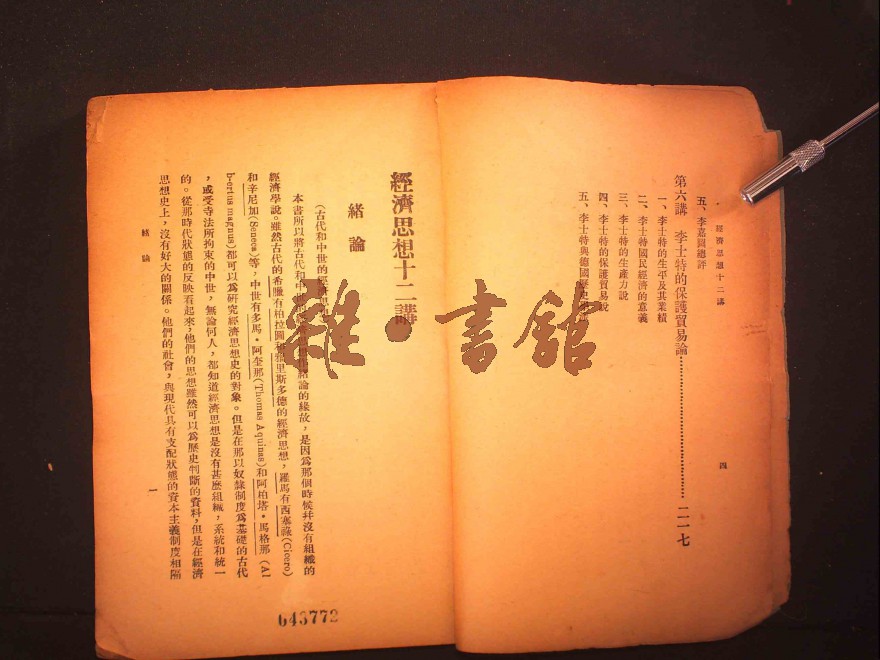 經濟思想十二講
五、李嘉圖總評
第六講 李士特的保護貿易論 二一七
一、李士特的生平及其業績
二、李士特國民經濟的意義
三、李士特的生產力說
四、李士特的保護貿易說
五、李士特與德國歷史
四
經濟思想十二講
緒論
(古代和中世的經濟思想
本書所以將古代和中世的 緒論的緣故，是因爲那個時候幷沒有組織的
經濟學說。雖然古代的希臘有柏拉圖 里斯多德的經濟思想，羅馬有西塞祿(Cicero)
和辛尼加(Seneca)等，中世有多馬·阿奎那(Thomas Aquinas)和阿柏塔·馬格那(Al
b·ertus magnus)都可以爲硏究經濟思想史的對象。但是在那以奴隸制度爲基礎的古代
，或受寺法所拘束的中世，無論何人，都知道經濟思想是沒有甚麽組織，系統和統一
的。從那時代狀態的反映看起來，他們的思想雖然可以爲歷史判斷的資料，但是在經濟
思想史上，沒有好大的關係。他們的社會，與現代具有支配狀態的資本主義制度相隔
緒論
一
643772
雜·書館